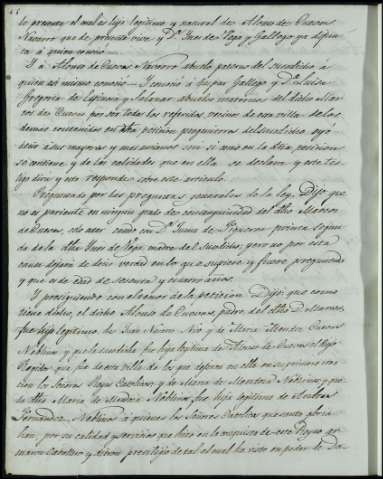 lo presente el cual es hijo legitimo y natural de Alonso de Cuevas
Navarro que de presente vive y D.ª Ines de Vega y Gallego ya difun-
ta á quien conoció
Y á Alonso de Cuevas Navarro abuelo paterno del susodicho á
quien así mismo conoció. Y conoció á Gaspar Gallego y D.ª Luisa
Gregoria de Espinosa y Salazar abuelos maternos del dicho Mar-
cos de Cuevas por ser todos los referidos vecinos de esta villa de los
demas contenidos en dicha peticion progenitores del susodicho oyó
decir á sus mayores y mas ancianos son si como en la dicha peticion
se contiene y de las calidades que en ella se declara y este tes-
tigo dice y esto responde sobre este articulo.
Preguntado por las preguntas generales de la ley. Dijo que
no es pariente en ningun grado de consanguinidad del dho Marcos
de Cuevas, solo estar casado con D.ª Juana de Figueroa prima segun-
da de la dha Ines de Vega madre del susodicho, pero no por esta
causa dejará de decir verdad en lo que supiere y fuere preguntado
y que es de edad de sesenta y cuatro años.
Y prosiguiendo con el tenor de la peticion. Dijo que como
tiene dicho, el dicho Alonso de Cuevas padre del dho D. Marcos,
fue hijo legitimo de Juan Navarro Niño y de Maria Mendez Cuevas
Nobleza y que la susodicha fue hija legitima de Alonso de Cuevas el hijo
que fue de esta villa de los que dejaron en ella en su primera
los Señores Reyes Catolicos, y de Maria de Mendoza Nobleza, y que
la dha Maria de Mendoza Nobleza fue hija legitima de
Fernandez Nobleza á quienes los Señores Catolicos
por su calidad y servicios que hizo en la conquista de este Reyno
Caballero y dieron privilegio de tal el cual ha visto en poder de D.ª